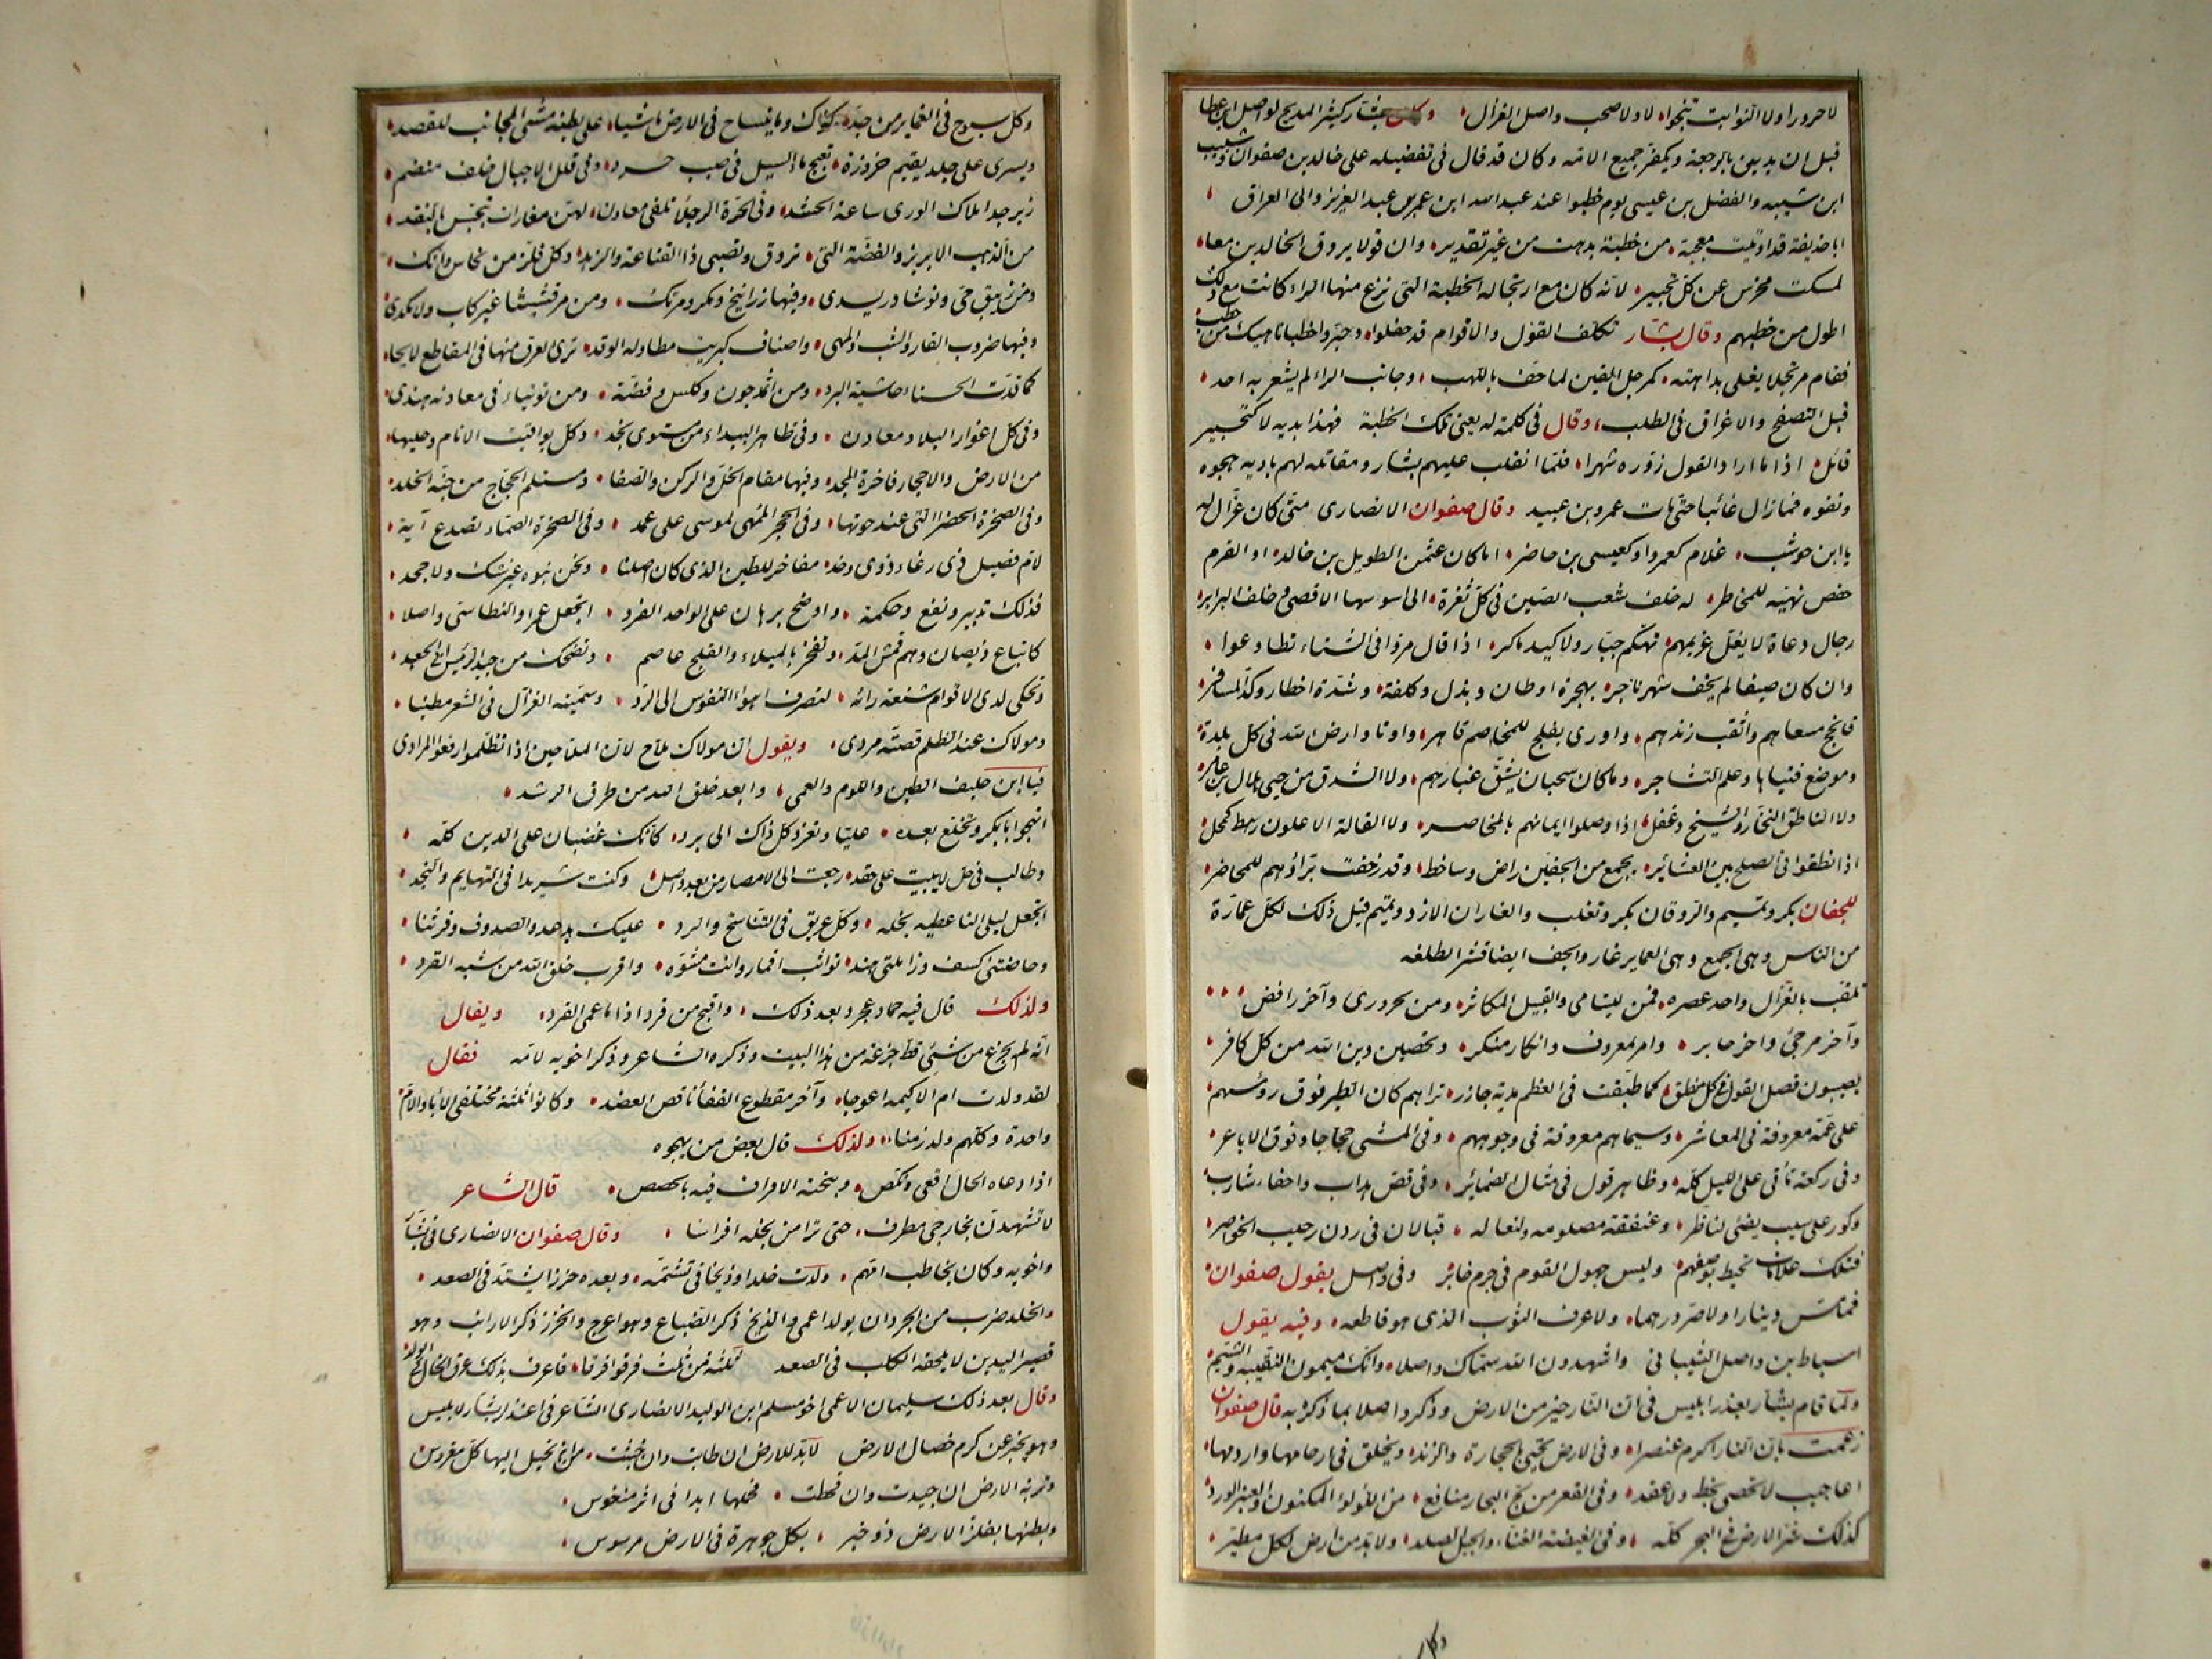 لا حرورا ولا النوابت تنجوا لا ولا صحب واصل الغزال وكان بشار كثير المديح لواصل ابن عطا
قبل ان يدين بالرجعة ويكفر جميع الامة وكان قد قال فى تفضيله على خالد بن صفوان وشبيب
ابن شيبه والفضل بن عيسى يوم خطبوا عند عبد الله ابن عمر بن عبد العزيز والى العراق
ابا حذيفة قد اوتيت معجبة من خطبة بدهت من غير تقدير وان قولا يروق الخالدين معا
لمسكت مخرس عن كل تحبير لانه كان مع ارتجاله الخطبة التى نزع منها الراء كانت مع ذلك
اطول من خطبهم وقال بشار تكلف القول والاقوام قد حفلوا وحبروا خطبا ناهيك من خطب
فقام مرتجلا يغلى بداهته كمرجل القين لما حف باللهب وجانب الراء لم يشعر به احد
قبل التصفح والاغراق فى الطلب وقال فى كلمة له يعنى تلك الخطبة فهذا بديه لا كتحبير
قائل اذا ما اراد القول زوره شهرا فلما انقلب عليهم بشار ومقاتله لهم باديه هجوه
ونفوه فما زال غائبا حتى مات عمرو بن عبيد وقال صفوان الانصارى متى كان غزال له
يا ابن حوشب غلام كعمرو او كعيسى بن حاضر اما كان عثمن الطويل بن خالد او القرم
حفص نهية للمخاطر له خلف شعب الصين فى كل ثغرة الى سوسها الاقصى وخلف البرابر
رجال دعاة لا يفل عزيمهم تهكم جبار ولا كيد ماكر اذا قال مروا فى الشتاء تطاوعوا
وان كان صيفا لم يخف شهر ناجر بهجرة اوطان وبذل وكلفة وشدة اخطار وكد المسافر
فانجح مسعاهم واثقب زندهم واورى بفلج للمخاصم قاهر واوتاد ارض الله فى كل بلدة
وموضع فتياها وعلم التشاجر وما كان سحبان يشق غبارهم ولا الشدق من حيى هلال بن عامر
ولا الناطق النخار والشيخ دغفل اذا وصلوا ايمانهم بالمخاصر ولا القالة الاعلون رهط مكحل
اذا نطقوا فى الصلح بين العشائر بجمع من الجفين راض وساخط وقد زحفت براؤهم للمحاضر
للجفان بكر وتميم والروقان بكر وتغلب والغاران الازد وتميم قيل ذلك لكل عمارة
من الناس وهى الجمع وهى العماير غار والجف ايضا قشر الطلعه
تلقب بالغزال واحد عصره فمن لليتامى والقبيل المكاثر ومن لحرورى وآخر رافض
وآخر مرجئ واخر حابر وامر بمعروف وانكار منكر وتحصين دين الله من كل كافر
يصيبون فصل القول فى كل منطق كما طبقت فى العظم مدية جازر تراهم كان الطير فوق رؤسهم
على عمة معروفة فى المعاشر وسيماهم معروفة فى وجوههم وفى المشى حجاجا وفوق الاباعر
وفى ركعة تأتى على الليل كله وظاهر قول فى مثال الضمائر وفى قص هداب واحفاء شارب
وكور على شيب يضئ لناظر وعنفقة مصلومه ولنعاله قبالان فى ردن رحيب الخواصر
فتلك علامات تحيط بوصفهم وليس جهول القوم فى جرم خابر وفى واصل يقول صفوان
فما مس دينارا ولا صر درهما ولا عرف الثوب الذى هو قاطعه وفيه يقول
اسباط بن واصل الشيبانى واشهد ان الله سماك واصلا وانك ميمون النقيبه والشيم
ولما قام بشار بعذر ابليس فى ان النار خير من الارض وذكر واصلا بما ذكره به قال صفوان
زعمت بان النار اكرم عنصرا وفى الارض تحيى بالحجارة والزند ويخلق فى ارحامها وارومها
اعاجيب لا تحصى بخط ولا عقد وفى القعر من لج البحار منافع من اللؤلؤ المكنون والعنبر الورد
كذلك سر الارض فى البحر كله وفى الغيضة الغناء والجبل الصلد ولا بد من ارض لكل مطير
وكل سبوح فى الغماير من جده كذاك وما ينساح فى الارض ماشيا على بطنه مشى المجانب للقصد
ويسرى على جلد يقيم خزوزة تعمج ماء السيل فى صبب حرد وفى قلل الاجبال خلف مقطم
زبرجد املاك الورى ساعة الحشد وفى الحرة الرجلا تلفى معادن لهن مغارات تبجس بالنقد
من الذهب الابريز والفضة التى تروق وتصبى ذا القناعة والزهد وكل فلز من نحاس وآنك
ومن زيبق حى ونوشادر يسدى وفيها زرانيخ ومكر ومرتك ومن مرقشيشا غير كاب ولا مكدى
وفيها ضروب القار والشب والمهى واصناف كبريت مطاوله الوقد ترى العرق منها فى المقاطع لايحا
كما قدت الحسناء حاشية البرد ومن اثمد جون وكلس وفضة ومن توتياء فى معادنه هندى
وفى كل اغوار البلاد معادن وفى ظاهر البيداء من مستوى نجد وكل يواقيت الانام وحليها
من الارض والاحجار فاخرة المجد وفيها مقام الخل والركن والصفا ومستلم الحجاج من جنة الخلد
وفى الصخرة الخضرا التى عند حوتها وفى الحجر الممهى لموسى على عمد وفى الصخرة الصماء تصدع آية
لام فصيل ذى رغاء ذوى وخد مفاخر للطين الذى كان اصلنا ونحن بنوه غير شك ولا جحد
فذلك تدبير ونفع وحكمة واوضح برهان على الواحد الفرد اتجعل عمرا والنطاسى واصلا
كاتباع ديصان وهم قمش المد وتفخر بالميلاء والعلج عاصم وتضحك من جيد الرئيس ابى الجعد
وتحكى لدى الاقوام شنعة رائه لتصرف اهواء النفوس الى الرد وسميته الغزال فى الشعر مطنبا
ومولاك عند الظلم قصته مردى ويقول ان مولاك ملاح لان الملاحين اذا تظلموا رفعوا المرادى
فيا ابن حليف الطين واللوم والعمى وابعد خلق الله من طرق الرشد
اتهجو ابا بكر وتخلع بعده عليا وتعزو كل ذاك الى برد كانك غضبان على الدين كله
وطالب ذحل لا يبيت على حقد رجعت الى الامصار من بعد واصل وكنت شريدا فى التهايم والنجد
اتجعل ليلى الناعطيه نحله وكل عريق فى التناسخ والرد عليك بدعد والصدوف وفرتنا
وحاضنتى كسف وزاملتى هند تواثب اقمارا وانت مشوه واقرب خلق الله من شبه القرد
ولذلك قال فيه حماد عجرد بعد ذلك واقبح من قرد اذا ما عمى القرد ويقال
انه لم يجزع من شئ قط جزعه من هذا البيت وذكره الشاعر وذكر اخويه لامه فقال
لقد ولدت ام الاكيمه اعوجا وآخر مقطوع القفا ناقص العضد وكانوا ثلثة مختلفى الاباء والام
واحدة وكلهم ولد زمنا ولذلك قال بعض من يهجوه
اذا دعاه الخال اقعى ونكص وهجنة الاقراف فيه بالحصص قال الشاعر
لا تشهدن بخارجى مطرف حتى ترا من نجله افراسا وقال صفوان الانصارى فى بشار
واخويه وكان يخاطب امهم ولدت خلدا وذيخا فى تشتمه وبعده خززا يشتد فى الصعد
والخلد ضرب من الجرذان يولد اعمى والذيخ ذكر الضباع وهو اعرج والخزز ذكر الارانب وهو
قصير اليدين لا يلحقه الكلب فى الصعد ثلثة من ثلث فرقوا فرقا فاعرف بذلك عرق الخال فى الولد
وقال بعد ذلك سليمان الاعمى اخو مسلم ابن الوليد الانصارى الشاعر فى اعتذار بشار لابليس
وهو يخبر عن كرم خصال الارض لابد للارض ان طابت وان خبثت من ان تحيل اليها كل مغروس
وتربة الارض ان جيدت وان قحطت فحملها ابدا فى اثر منغوس
وبطنها بفلز الارض ذو خبر بكل جوهرة فى الارض مرموس